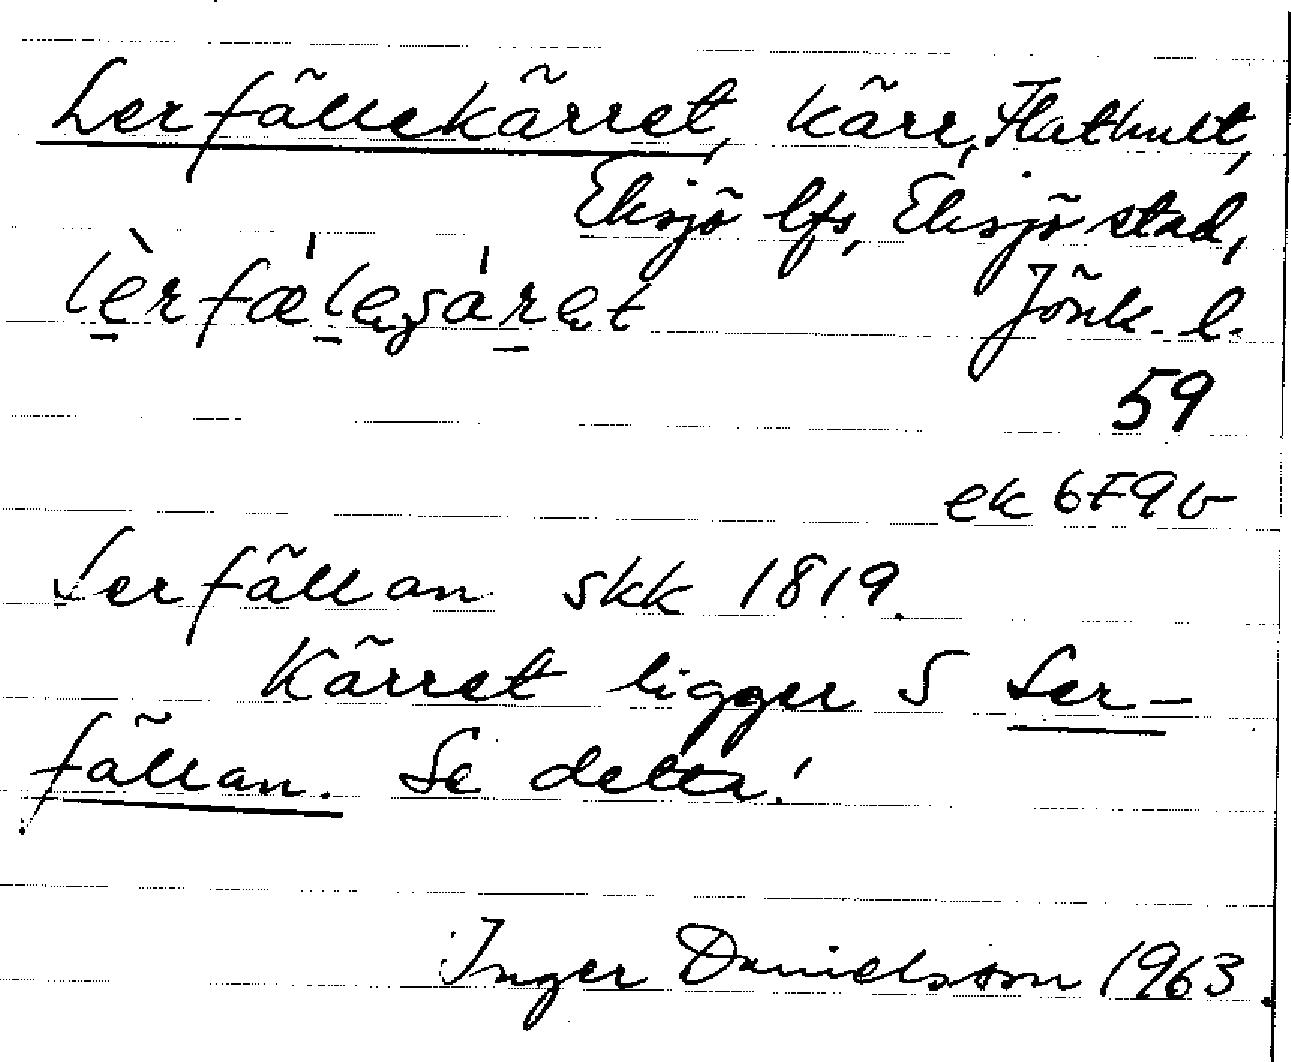 Lerfällekärret, kärr, Flathult,
Eksjö lfs, Eksjö stad,
lèrfælegáret Jönk. l.
59
ek 6F9b
Lerfällan skk 1819.
Kärret ligger S Ler-
fällan. Se detta!
Inger Danielsson 1963.